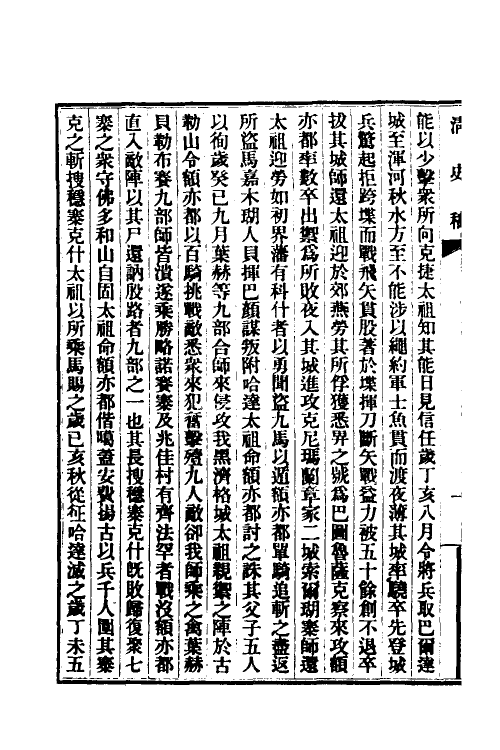 清史稿
能以少擊衆所向克捷太祖知其能日見信任歲丁亥八月令將兵取巴爾達
城至渾河秋水方至不能涉以繩約軍士魚貫而渡夜薄其城率驍卒先登城
兵驚起拒跨堞而戰飛矢貫股著於堞揮刀斷矢戰益力被五十餘創不退卒
拔其城師還太祖迎於郊燕勞其所俘獲悉畀之號爲巴圖魯薩克察來攻額
亦都率數卒出禦爲所敗夜入其城進攻克尼瑪蘭章家二城索爾瑚寨師還
太祖迎勞如初界藩有科什者以勇聞盜九馬以遁額亦都單騎追斬之盡返
所盜馬嘉木瑚人貝揮巴顏謀叛附哈達太祖命額亦都討之誅其父子五人
以徇歲癸巳九月葉赫等九部合師來侵攻我黑濟格城太祖親禦之陣於古
勒山令額亦都以百騎挑戰敵悉衆來犯奮擊殪九人敵卻我師乘之禽葉赫
貝勒布寨九部師皆潰遂乘勝略諾賽寨及兆佳村有齊法罕者戰沒額亦都
直入敵陣以其尸還訥殷路者九部之一也其長搜穩塞克什旣敗歸復聚七
寨之衆守佛多和山自固太祖命額亦都偕噶蓋安費揚古以兵千人圍其寨
克之斬搜穩塞克什太祖以所乘馬賜之歲己亥秋從征哈達滅之歲丁未五
一